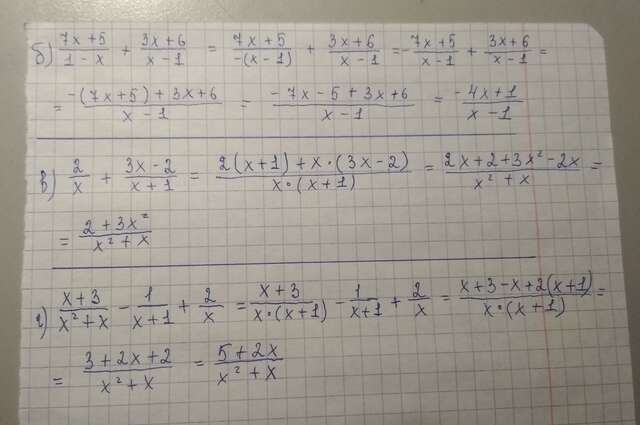 б) (7x+5)/(1-x) + (3x+6)/(x-1) = (7x+5)/(-(x-1)) + (3x+6)/(x-1) = -(7x+5)/(x-1) + (3x+6)/(x-1) =
= (-(7x+5)+3x+6)/(x-1) = (-7x-5+3x+6)/(x-1) = (-4x+1)/(x-1)
в) 2/x + (3x-2)/(x+1) = (2(x+1)+x·(3x-2))/(x·(x+1)) = (2x+2+3x²-2x)/(x²+x) =
= (2+3x²)/(x²+x)
г) (x+3)/(x²+x) - 1/(x+1) + 2/x = (x+3)/(x·(x+1)) - 1/(x+1) + 2/x = (x+3-x+2(x+1))/(x·(x+1)) =
= (3+2x+2)/(x²+x) = (5+2x)/(x²+x)